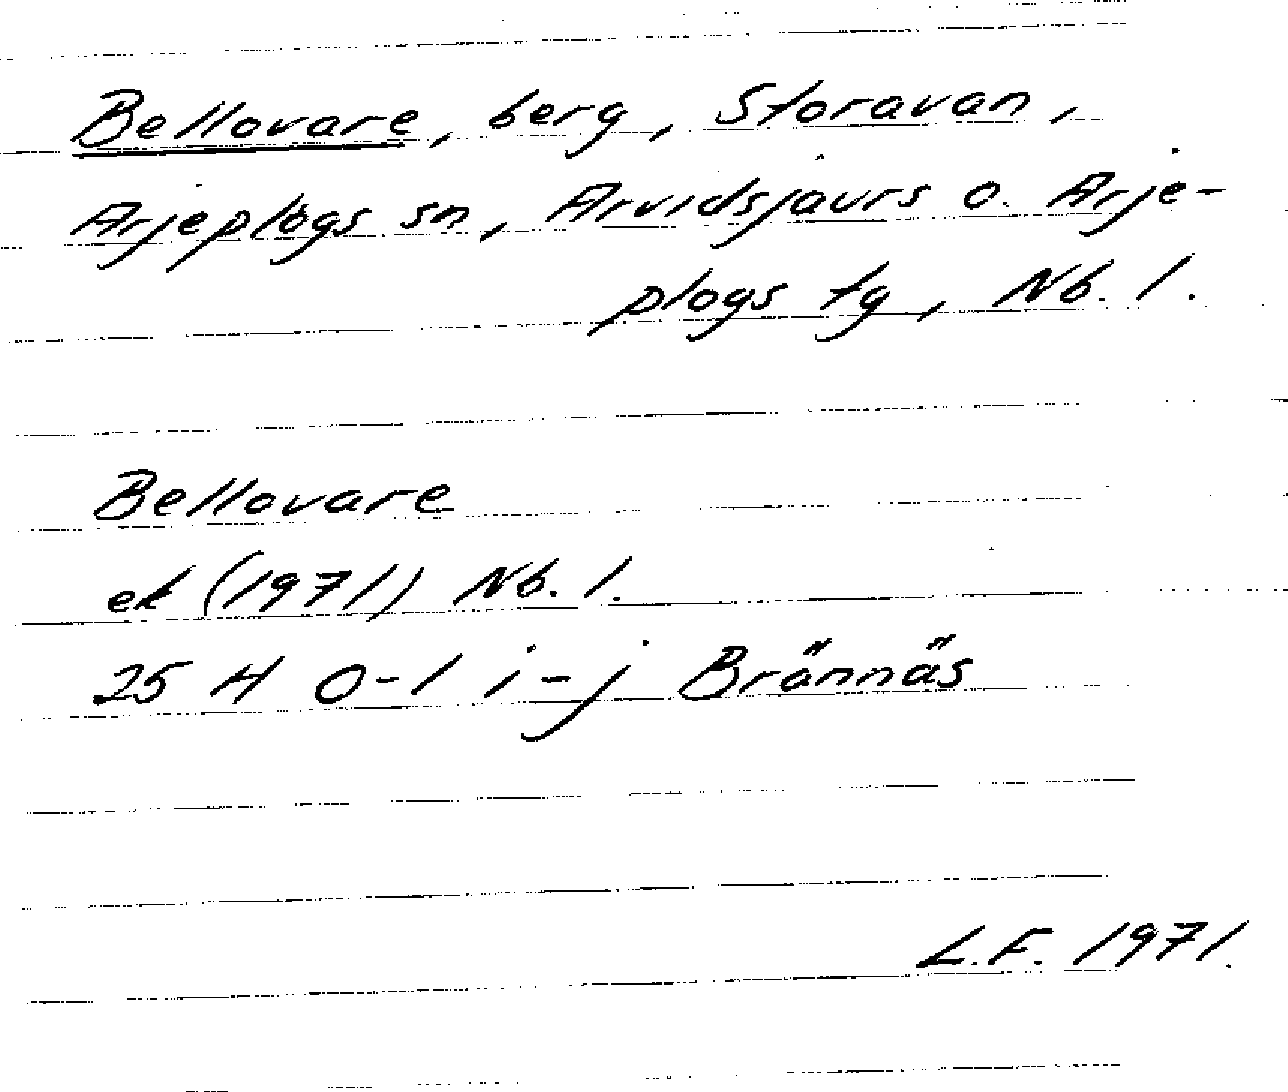 Bellovare, berg, Storavan,
Arjeplogs sn, Arvidsjaurs o. Arje-
plogs tg, Nb. l.
Bellovare
ek (1971) Nb. l.
25 H 0-1 i-j Brännäs
L.F. 1971.